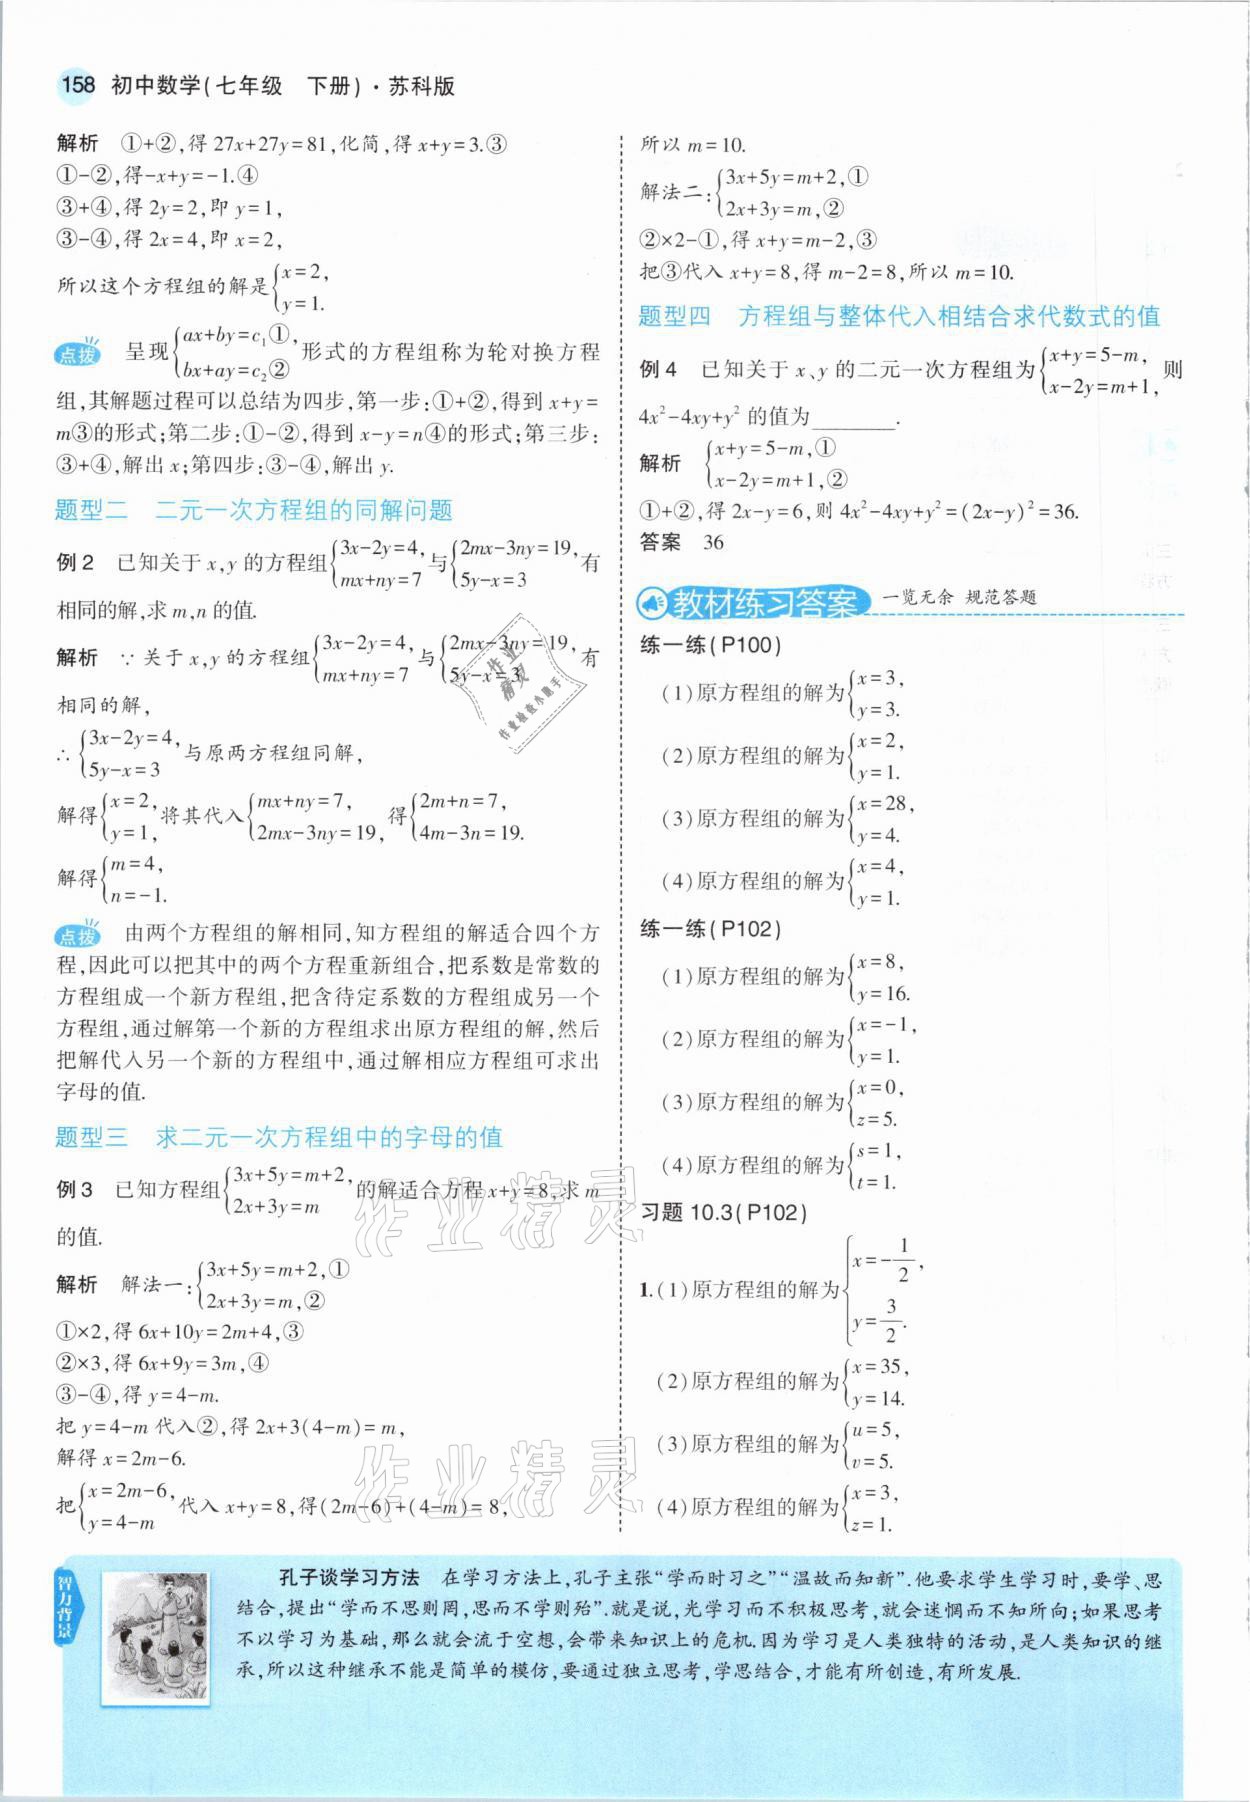 158 初中数学(七年级 下册)·苏科版
解析 ①+②,得 27x+27y=81,化简,得 x+y=3.③
①-②,得-x+y=-1.④
③+④,得 2y=2,即 y=1,
③-④,得 2x=4,即 x=2,
所以这个方程组的解是{x=2,
y=1.
点拨 呈现{ax+by=c₁①,
bx+ay=c₂② 形式的方程组称为轮对换方程
组,其解题过程可以总结为四步,第一步:①+②,得到 x+y=
m③的形式;第二步:①-②,得到 x-y=n④的形式;第三步:
③+④,解出 x;第四步:③-④,解出 y.
题型二 二元一次方程组的同解问题
例 2 已知关于 x,y 的方程组{3x-2y=4,
mx+ny=7 与{2mx-3ny=19,
5y-x=3 有
相同的解,求 m,n 的值.
解析 ∵关于 x,y 的方程组{3x-2y=4,
mx+ny=7 与{2mx-3ny=19,
5y-x=3 有
相同的解,
∴{3x-2y=4,
5y-x=3 与原两方程组同解,
解得{x=2,
y=1, 将其代入{mx+ny=7,
2mx-3ny=19, 得{2m+n=7,
4m-3n=19.
解得{m=4,
n=-1.
点拨 由两个方程组的解相同,知方程组的解适合四个方
程,因此可以把其中的两个方程重新组合,把系数是常数的
方程组成一个新方程组,把含待定系数的方程组成另一个
方程组,通过解第一个新的方程组求出原方程组的解,然后
把解代入另一个新的方程组中,通过解相应方程组可求出
字母的值.
题型三 求二元一次方程组中的字母的值
例 3 已知方程组{3x+5y=m+2,
2x+3y=m 的解适合方程 x+y=8,求 m
的值.
解析 解法一:{3x+5y=m+2,①
2x+3y=m,②
①×2,得 6x+10y=2m+4,③
②×3,得 6x+9y=3m,④
③-④,得 y=4-m.
把 y=4-m 代入②,得 2x+3(4-m)=m,
解得 x=2m-6.
把{x=2m-6,
y=4-m 代入 x+y=8,得(2m-6)+(4-m)=8,
所以 m=10.
解法二:{3x+5y=m+2,①
2x+3y=m,②
②×2-①,得 x+y=m-2,③
把③代入 x+y=8,得 m-2=8,所以 m=10.
题型四 方程组与整体代入相结合求代数式的值
例 4 已知关于 x、y 的二元一次方程组为{x+y=5-m,
x-2y=m+1, 则
4x²-4xy+y² 的值为________.
解析 {x+y=5-m,①
x-2y=m+1,②
①+②,得 2x-y=6,则 4x²-4xy+y²=(2x-y)²=36.
答案 36
教材练习答案 一览无余 规范答题
练一练(P100)
(1)原方程组的解为{x=3,
y=3.
(2)原方程组的解为{x=2,
y=1.
(3)原方程组的解为{x=28,
y=4.
(4)原方程组的解为{x=4,
y=1.
练一练(P102)
(1)原方程组的解为{x=8,
y=16.
(2)原方程组的解为{x=-1,
y=1.
(3)原方程组的解为{x=0,
z=5.
(4)原方程组的解为{s=1,
t=1.
习题 10.3(P102)
1.(1)原方程组的解为{x=-1/2,
y=3/2.
(2)原方程组的解为{x=35,
y=14.
(3)原方程组的解为{u=5,
v=5.
(4)原方程组的解为{x=3,
z=1.
智力背景
孔子谈学习方法 在学习方法上,孔子主张“学而时习之”“温故而知新”.他要求学生学习时,要学、思
结合,提出“学而不思则罔,思而不学则殆”.就是说,光学习而不积极思考,就会迷惘而不知所向;如果思考
不以学习为基础,那么就会流于空想,会带来知识上的危机.因为学习是人类独特的活动,是人类知识的继
承,所以这种继承不能是简单的模仿,要通过独立思考,学思结合,才能有所创造,有所发展.
作业精灵
作业检查小助手
作业精灵
作业精灵